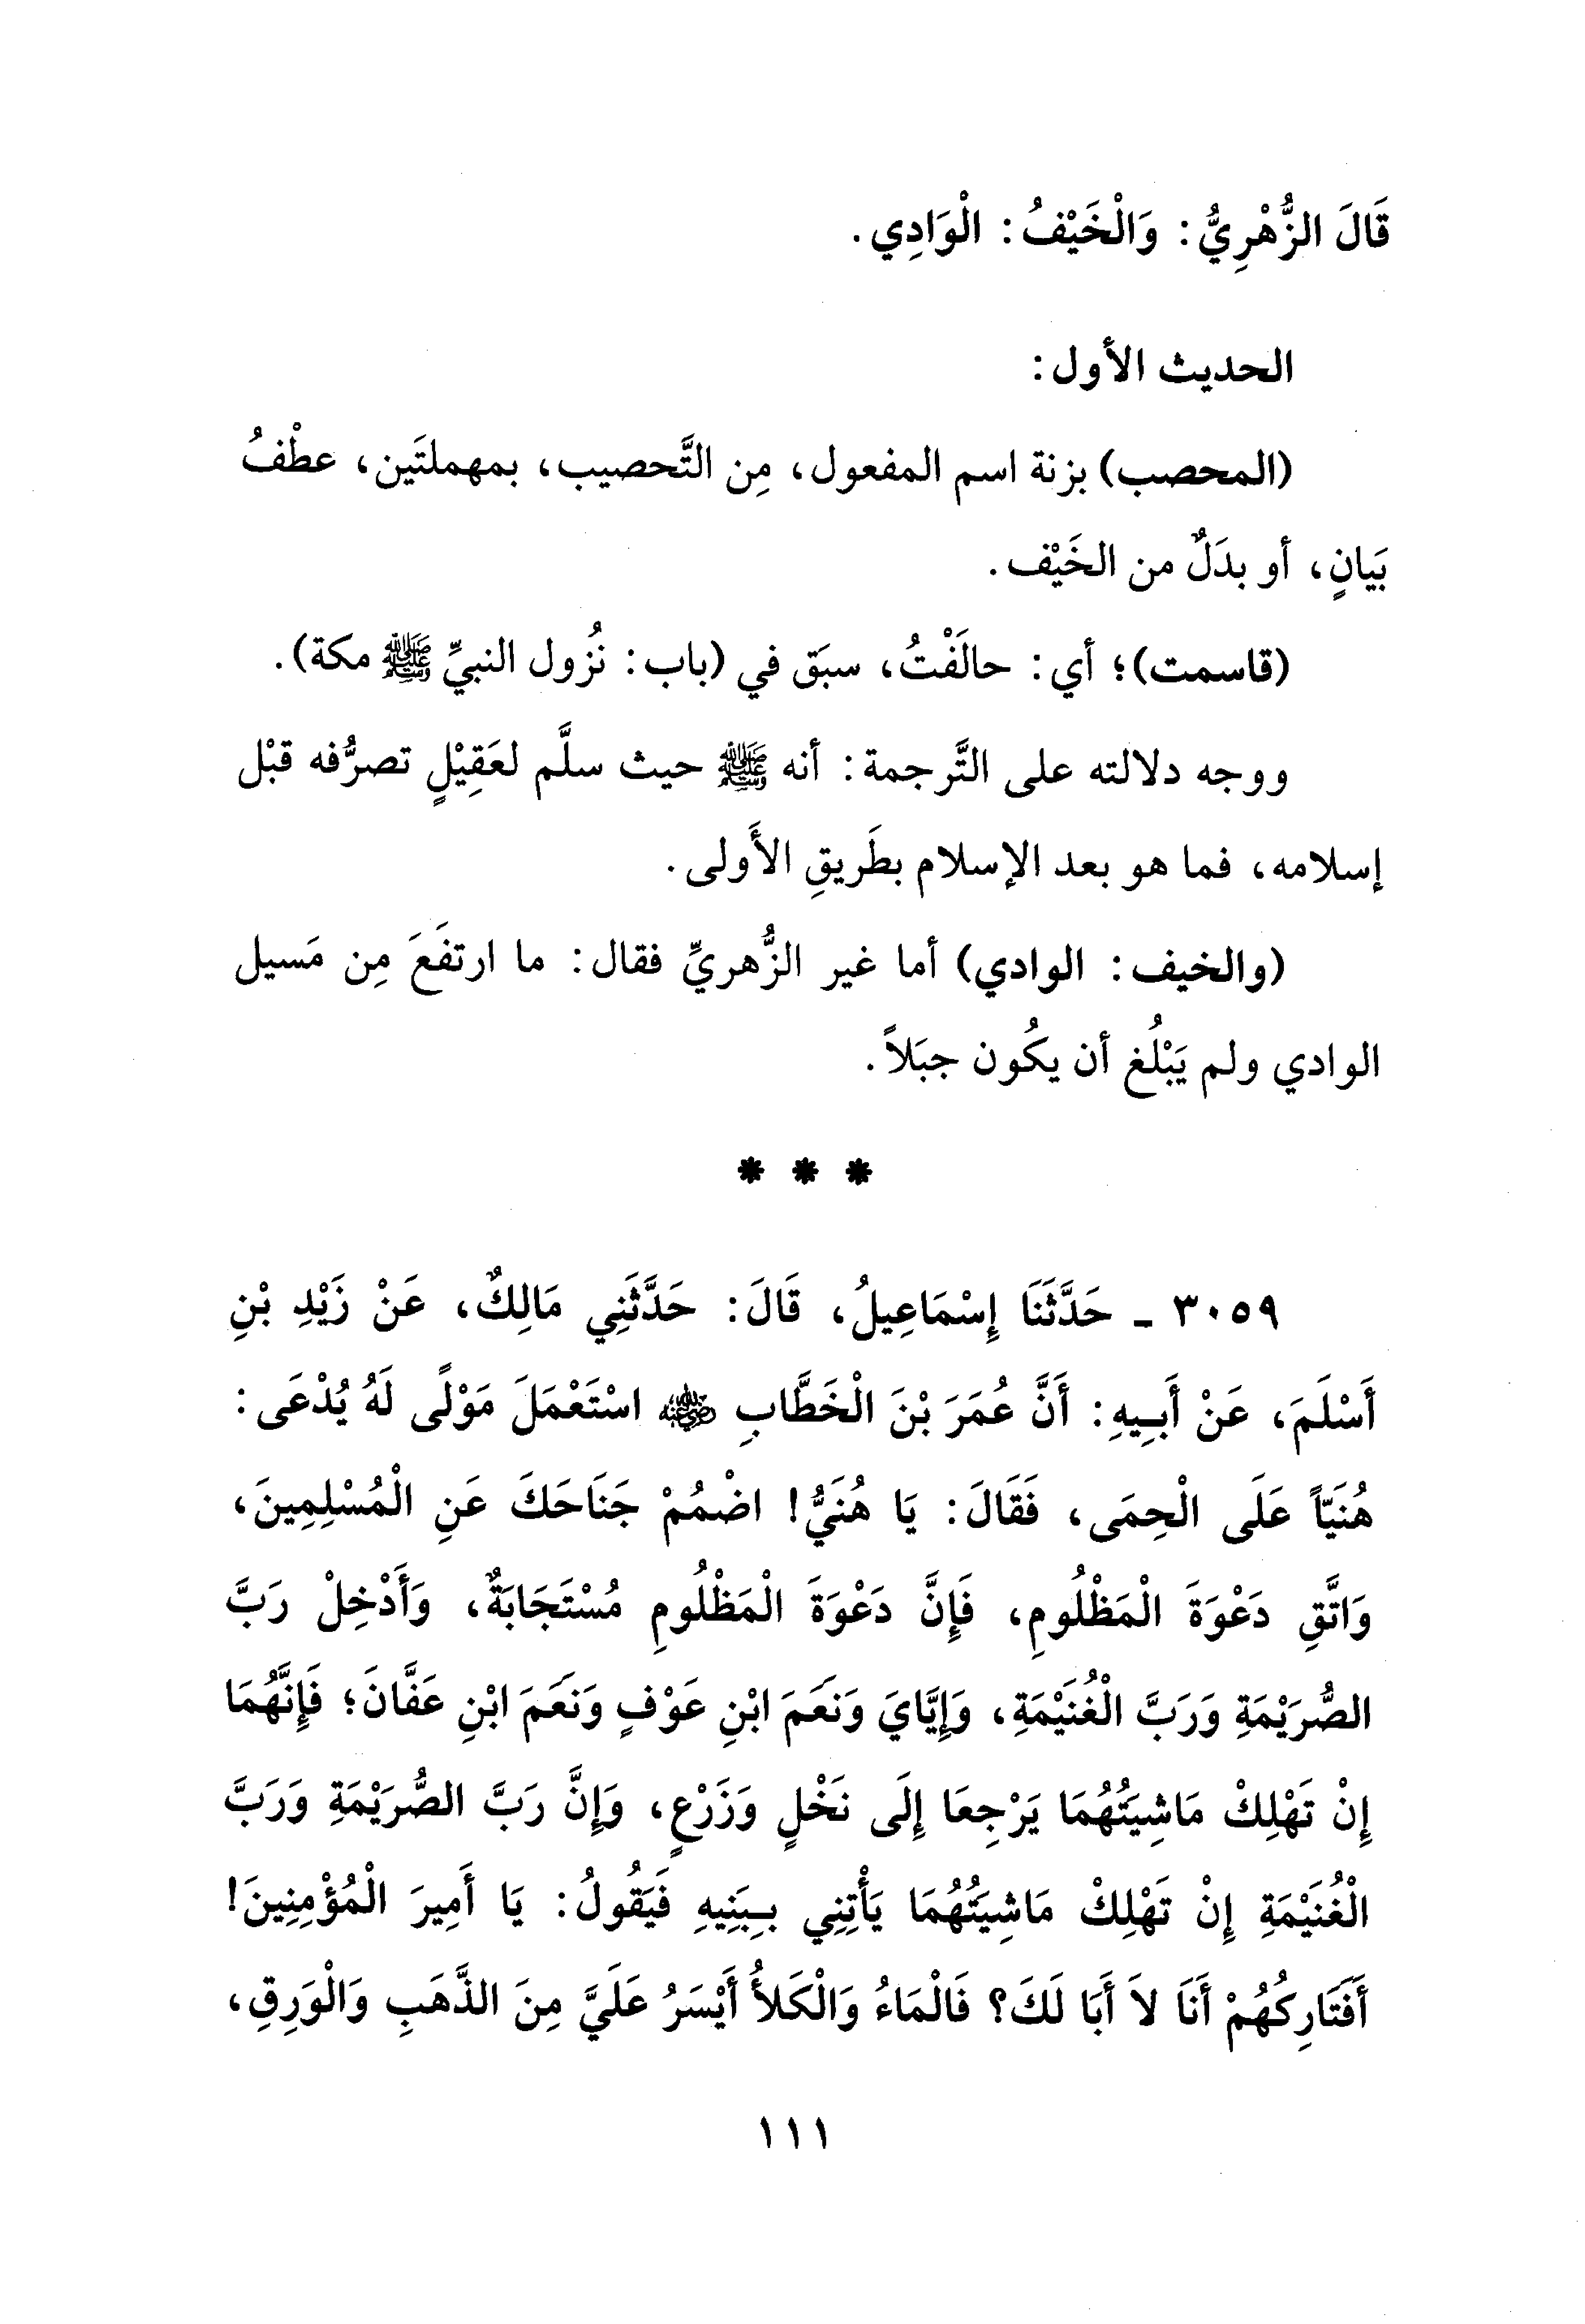 قَالَ الزُّهْرِيُّ: وَالْخَيْفُ: الْوَادِي.
الحديث الأول:
(المحصب) بزنة اسم المفعول، مِن التَّحصيب، بمهملتَين، عطْفُ
بَيانٍ، أو بدَلٌ من الخَيْف.
(قاسمت)؛ أي: حالَفْتُ، سبَق في (باب: نُزول النبيِّ ﷺ مكة).
ووجه دلالته على التَّرجمة: أنه ﷺ حيث سلَّم لعَقِيْلٍ تصرُّفه قبْل
إسلامه، فما هو بعد الإسلام بطَريقِ الأَولى.
(والخيف: الوادي) أما غير الزُّهريِّ فقال: ما ارتفَعَ مِن مَسيل
الوادي ولم يَبْلُغ أن يكُون جبَلاً.
* * *
٣٠٥٩ ـ حَدَّثَنَا إِسْمَاعِيلُ، قَالَ: حَدَّثَنِي مَالِكٌ، عَنْ زَيْدِ بْنِ
أَسْلَمَ، عَنْ أَبِيهِ: أَنَّ عُمَرَ بْنَ الْخَطَّابِ رضي الله عنه اسْتَعْمَلَ مَوْلًى لَهُ يُدْعَى:
هُنَيّاً عَلَى الْحِمَى، فَقَالَ: يَا هُنَيُّ! اضْمُمْ جَنَاحَكَ عَنِ الْمُسْلِمِينَ،
وَاتَّقِ دَعْوَةَ الْمَظْلُومِ، فَإِنَّ دَعْوَةَ الْمَظْلُومِ مُسْتَجَابَةٌ، وَأَدْخِلْ رَبَّ
الصُّرَيْمَةِ وَرَبَّ الْغُنَيْمَةِ، وَإِيَّايَ وَنَعَمَ ابْنِ عَوْفٍ وَنَعَمَ ابْنِ عَفَّانَ؛ فَإِنَّهُمَا
إِنْ تَهْلِكْ مَاشِيَتُهُمَا يَرْجِعَا إِلَى نَخْلٍ وَزَرْعٍ، وَإِنَّ رَبَّ الصُّرَيْمَةِ وَرَبَّ
الْغُنَيْمَةِ إِنْ تَهْلِكْ مَاشِيَتُهُمَا يَأْتِنِي بِبَنِيهِ فَيَقُولُ: يَا أَمِيرَ الْمُؤْمِنِينَ!
أَفَتَارِكُهُمْ أَنَا لاَ أَبَا لَكَ؟ فَالْمَاءُ وَالْكَلأُ أَيْسَرُ عَلَيَّ مِنَ الذَّهَبِ وَالْوَرِقِ،
١١١